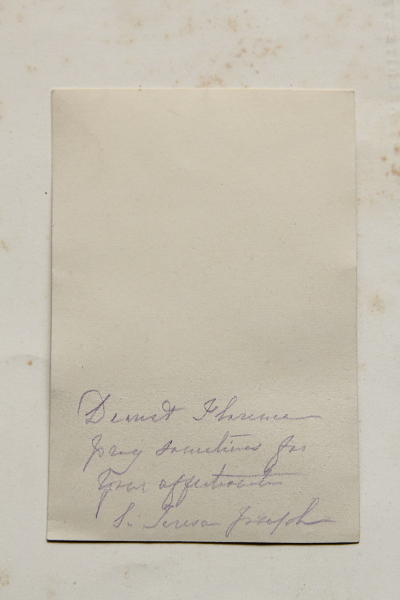 Dearest Florence
pray sometimes for
Your affectionate
S. Teresa Joseph